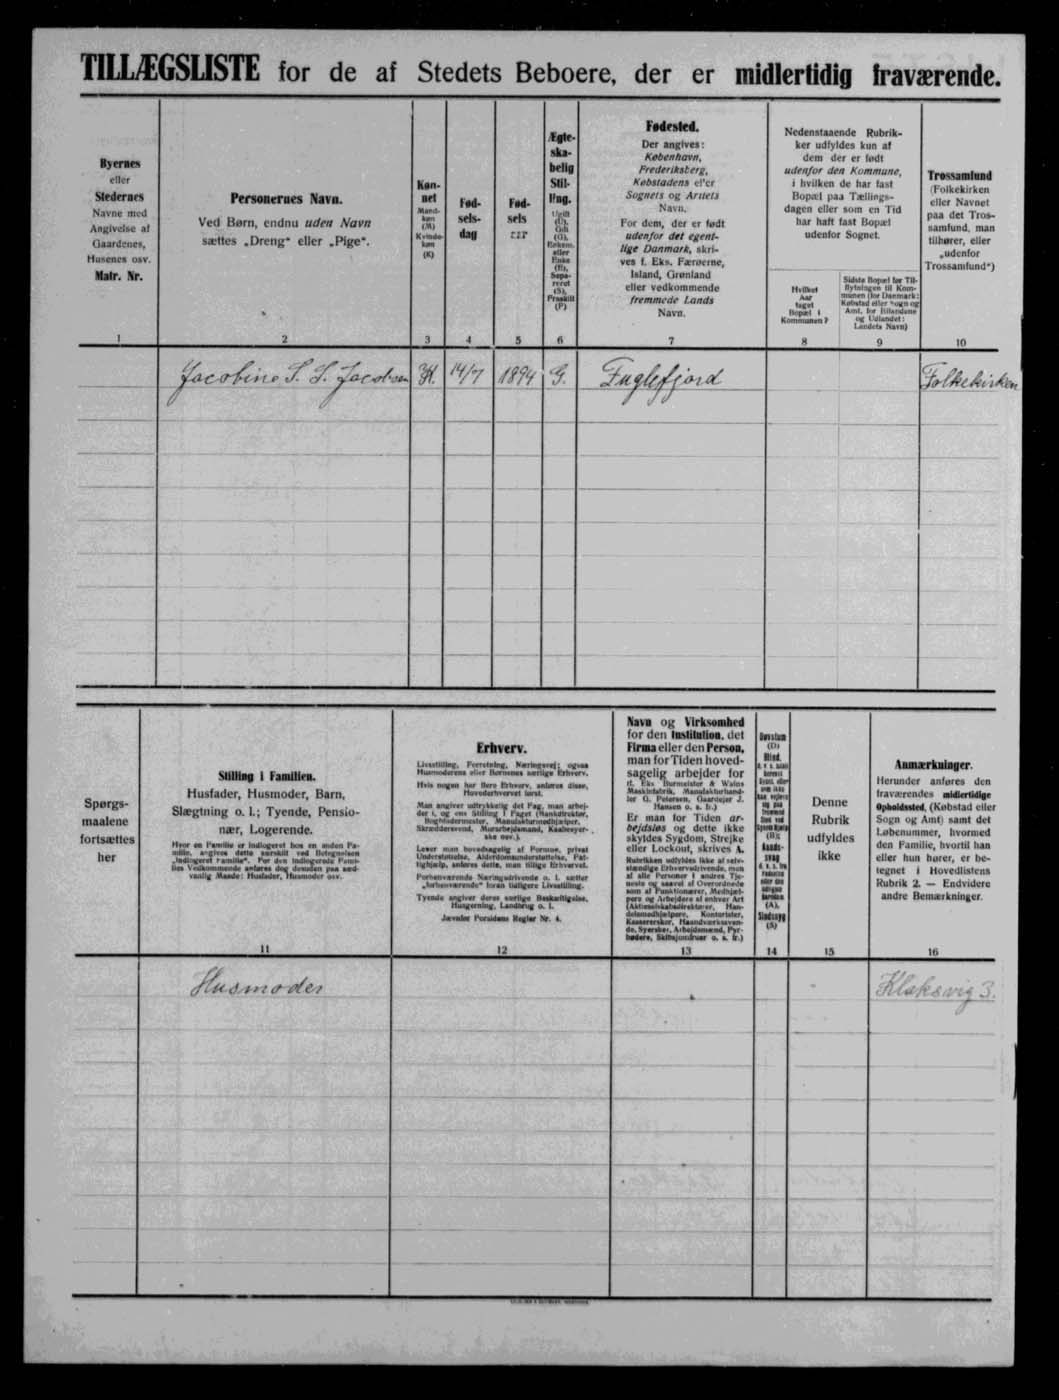 TILLÆGSLISTE for de af Stedets Beboere, der er midlertidig fraværende.
Byernes
eller
Stedernes
Navne med
Angivelse af
Gaardenes,
Husenes osv.
Matr. Nr.
1
Personernes Navn.
Ved Børn, endnu uden Navn
sættes „Dreng“ eller „Pige“.
2
Køn-
net
Mand-
køn
(M)
Kvinde-
køn
(K)
3
Fød-
sels-
dag
4
Fød-
sels
5
Ægte-
ska-
belig
Stil-
ling.
Ugift
(U),
Gift
(G),
Enkem.
eller
Enke
(E),
Sepa-
reret
(S),
Fraskilt
(F)
6
Fødested.
Der angives:
København,
Frederiksberg,
Købstadens eller
Sognets og Amtets
Navn.
For dem, der er født
udenfor det egent-
lige Danmark, skri-
ves f. Eks. Færøerne,
Island, Grønland
eller vedkommende
fremmede Lands
Navn.
7
Nedenstaaende Rubrik-
ker udfyldes kun af
dem der er født
udenfor den Kommune,
i hvilken de har fast
Bopæl paa Tællings-
dagen eller som en Tid
har haft fast Bopæl
udenfor Sognet.
Hvilket
Aar
taget
Bopæl i
Kommunen?
8
Sidste Bopæl før Til-
flytningen til Kom-
munen (for Danmark:
Købstad eller Sogn og
Amt, for Bilandene
og Udlandet:
Landets Navn)
9
Trossamfund
(Folkekirken
eller Navnet
paa det Tros-
samfund, man
tilhører, eller
„udenfor
Trossamfund“)
10
Jacobine S. S. Jacobsen K. 14/7 1894 G. Fuglefjord Folkekirken
Spørgs-
maalene
fortsættes
her
Stilling i Familien.
Husfader, Husmoder, Barn,
Slægtning o. l.; Tyende, Pensio-
nær, Logerende.
Hvor en Familie er indlogeret hos en anden Fa-
milie, angives dette særskilt ved Betegnelsen
„indlogeret Familie“. For den indlogerede Fami-
lies Vedkommende anføres dog desuden paa sæd-
vanlig Maade: Husfader, Husmoder osv.
11
Erhverv.
Livsstilling, Forretning, Næringsvej; ogsaa
Husmoderens eller Børnenes særlige Erhverv.
Hvis nogen har flere Erhverv, anføres disse,
Hovederhvervet først.
Man angiver udtrykkelig det Fag, man arbej-
der i, og ens Stilling i Faget (Bankdirektør,
Bogbindermester, Manufakturmedhjælper,
Skræddersvend, Murarbejdsmand, Kaabesyer-
ske osv.).
Lever man hovedsagelig af Formue, privat
Understøttelse, Alderdomsunderstøttelse, Fat-
tighjælp, anføres dette, man tillige Erhvervet.
Forhenværende Næringsdrivende o. l. sætter
„forhenværende“ foran tidligere Livsstilling.
Tyende angiver deres særlige Beskæftigelse,
Husgerning, Landbrug o. l.
Jævnfør Forsidens Regler Nr. 4.
12
Navn og Virksomhed
for den Institution, det
Firma eller den Person,
man for Tiden hoved-
sagelig arbejder for
(f. Eks. Burmeister & Wains
Maskinfabrik, Manufakturhand-
ler G. Petersen, Gaardejer J.
Hansen o. s. fr.)
Er man for Tiden ar-
bejdsløs og dette ikke
skyldes Sygdom, Strejke
eller Lockout, skrives A.
Rubrikken udfyldes ikke af selv-
stændige Erhvervsdrivende, men
af alle Personer i andres Tje-
neste og saavel af Overordnede
som af Funktionærer, Medhjæl-
pere og Arbejdere af enhver Art
(Aktieselskabsdirektører, Han-
delsmedhjælpere, Kontorister,
Kassererskor, Haandværkssven-
de, Syersker, Arbejdsmænd, Fyr-
bødere, Skibsjomfruer o. s. fr.)
13
Døvstum
(D)
Blind,
(B);
Aands-
svag
(A),
Sindssyg
(S)
14
Denne
Rubrik
udfyldes
ikke
15
Anmærkninger.
Herunder anføres den
fraværendes midlertidige
Opholdssted, (Købstad eller
Sogn og Amt) samt det
Løbenummer, hvormed
den Familie, hvortil han
eller hun hører, er be-
tegnet i Hovedlistens
Rubrik 2. — Endvidere
andre Bemærkninger.
16
Husmoder Klaksvig 3.